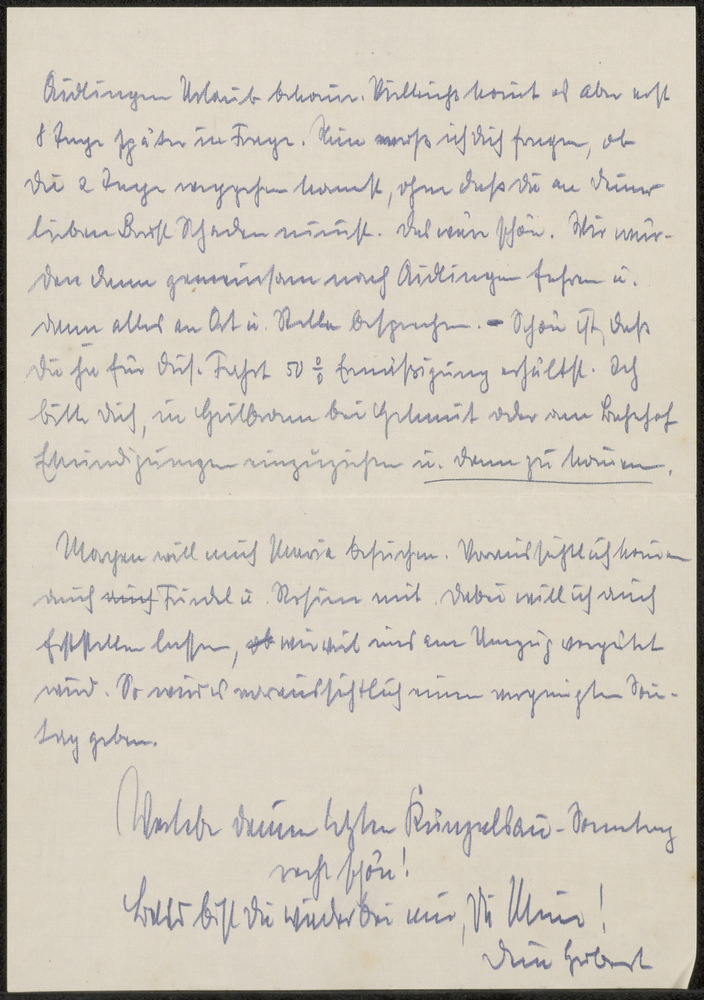 Aidlingen Urlaub bekomme. Vielleicht kommt es aber erst
8 Tage später in Frage. Nun muß ich Dich fragen, ob
Du 2 Tage weggehen kannst, ohne daß Du an Deiner
lieben Schaden nimmst. Das wäre schön. Wir wür-
den dann gemeinsam nach Aidlingen fahren u.
dann alles an Ort u. Stelle besprechen. – Schön ist, daß
Du ja für dies. Fahrt 50 % Ermäßigung erhältst. Ich
bitte Dich, in Heilbronn bei Helmut oder am Bahnhof
Erkundigungen einzuziehen u. dann zu kommen.
Morgen will mich Maria besuchen. Voraussichtlich kommen
auch u. mit. Dabei will ich auch
feststellen lassen, ob wieviel uns am Umzug vergütet
wird. So wird es voraussichtlich einen vergnügten Sonn-
tag geben.
Verlebe Deinen letzten Künzelsau-Sonntag
recht schön!
Bald bist Du wieder bei mir, Du Meine!
Dein Herbert